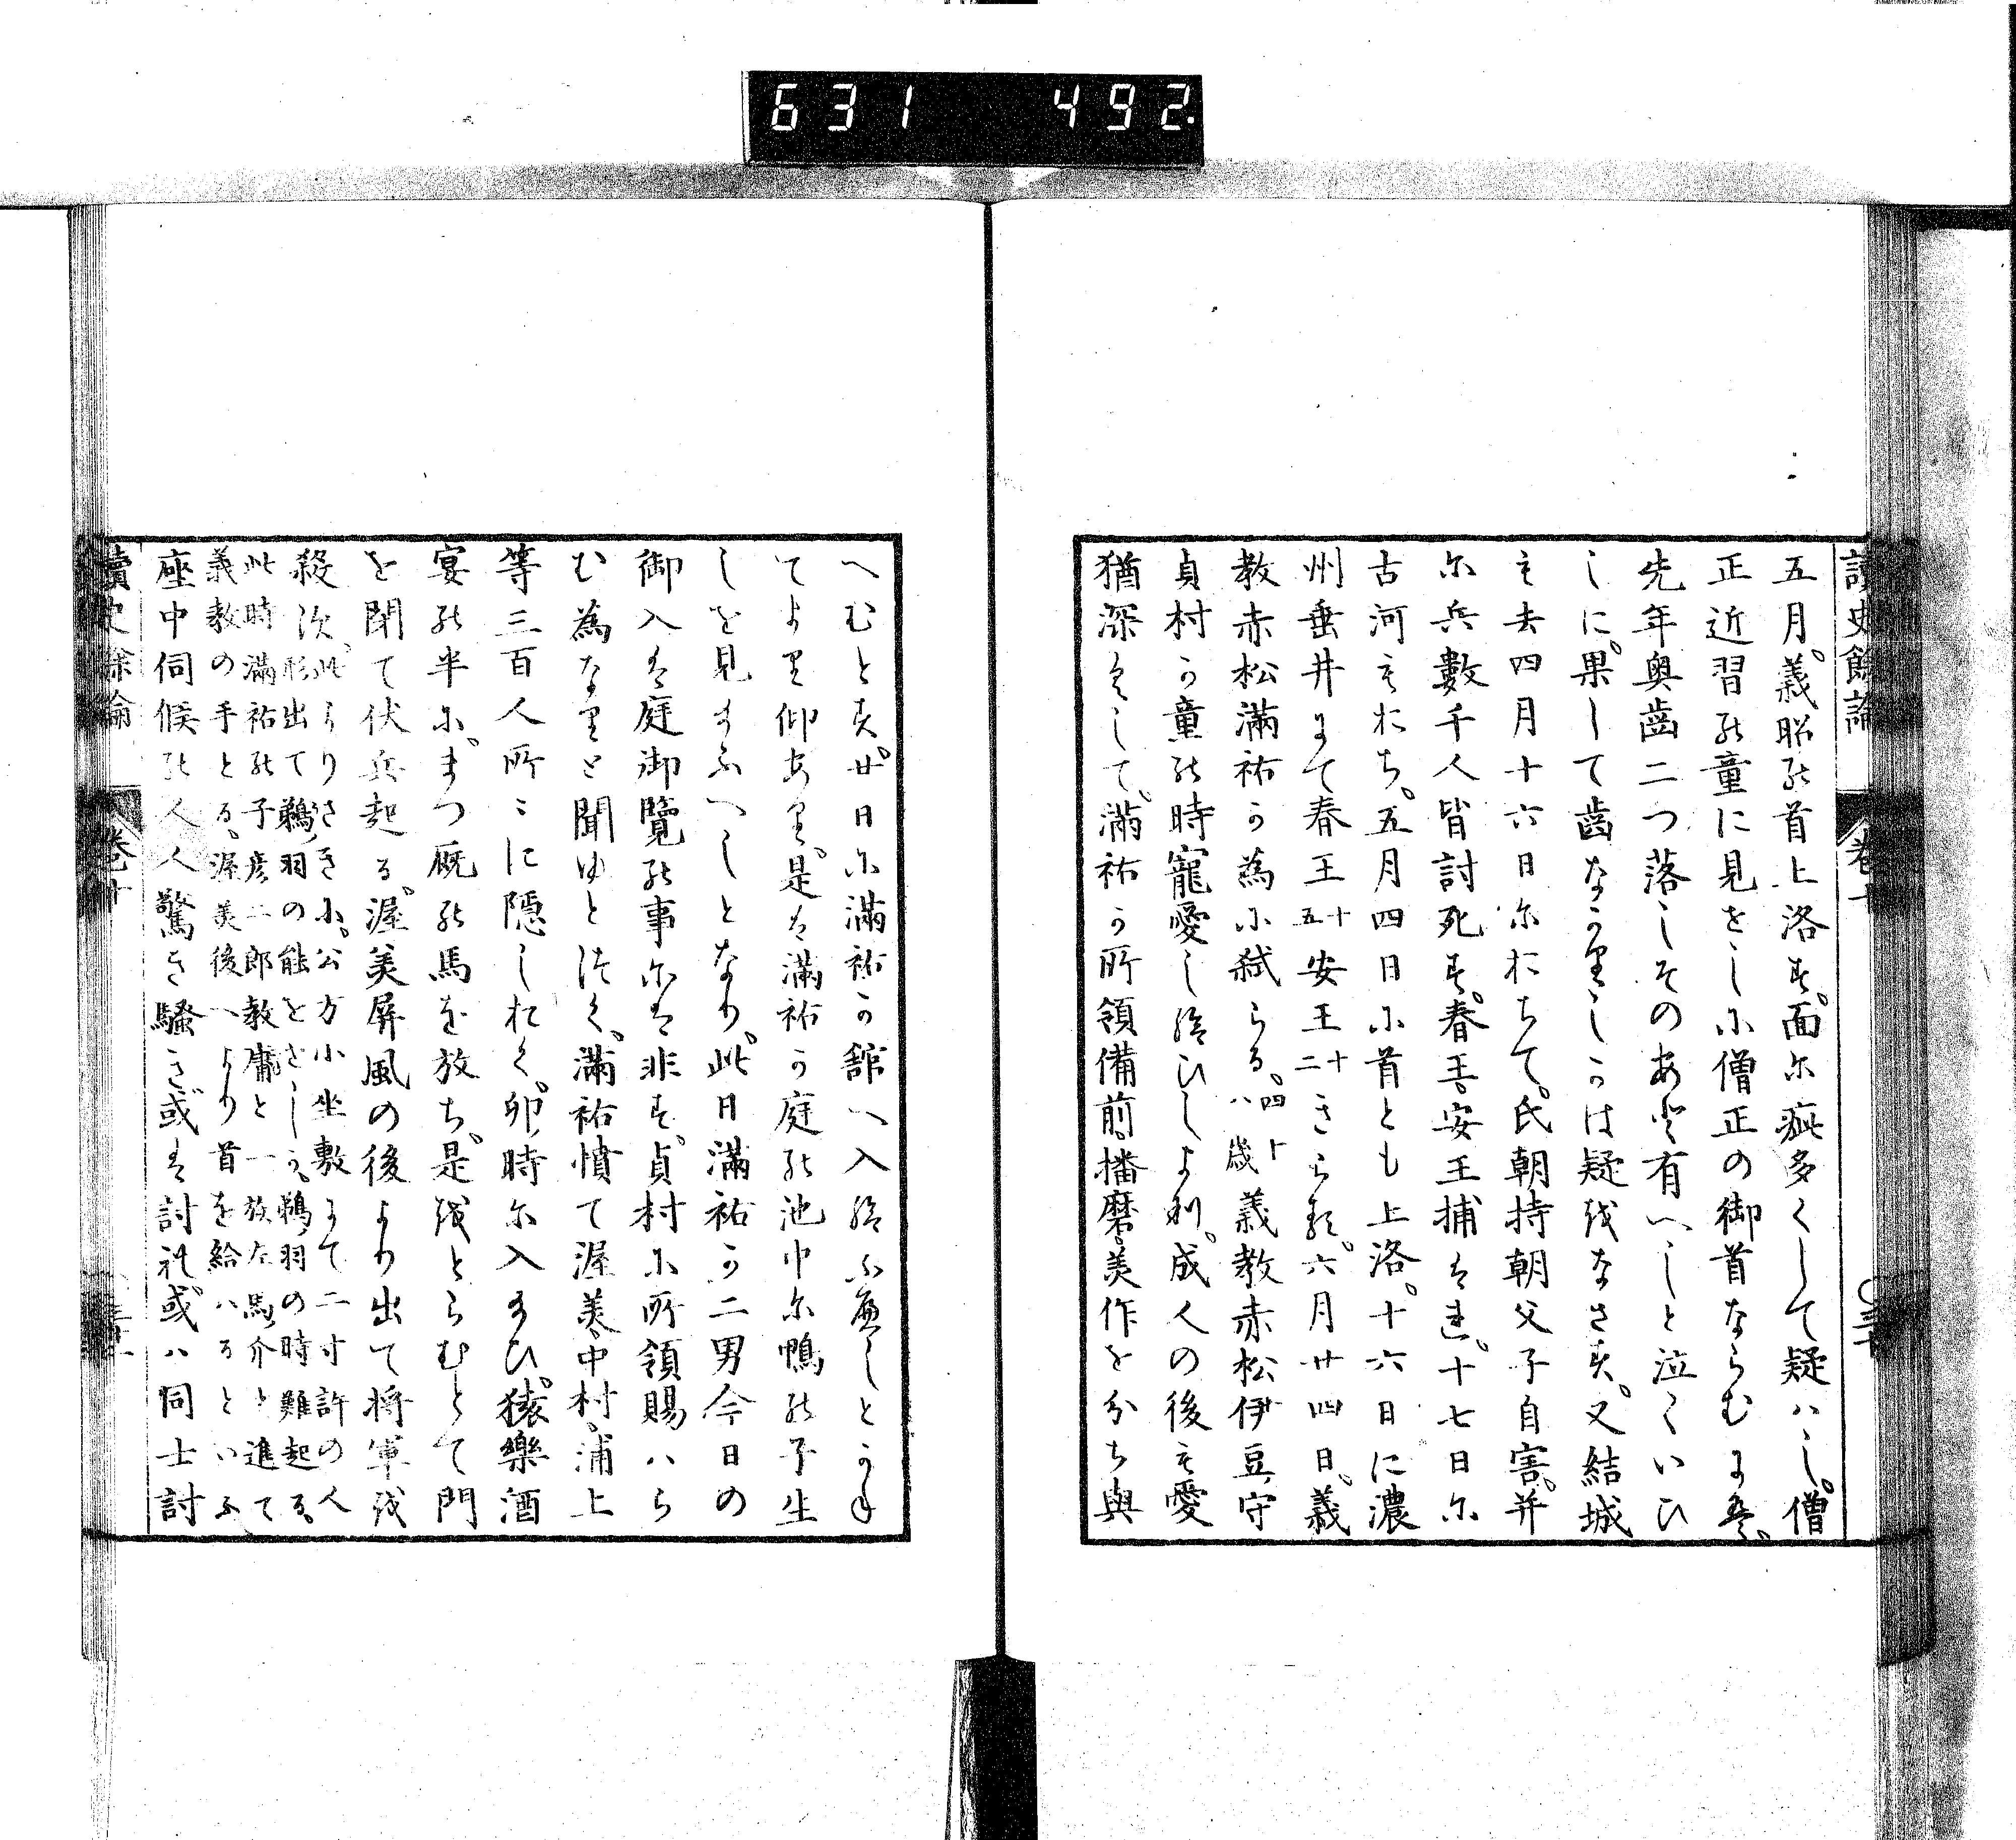 631 492.
讀史餘論 卷十
五月。義昭の首上洛す。面に疵多くして疑ハし。僧
正近習の童に見せしに僧正の御首ならむにハ。
先年奥歯二つ落しそのあと有へしと泣くいひ
しに。果して歯なかりしかは疑をなさす。又結城
も去四月十六日におちて。氏朝持朝父子自害。并
に兵數千人皆討死す。春王安王捕はる。十七日に
古河もおち。五月四日に首とも上洛。十六日に濃
州垂井にて春王十五安王十二きらる。六月廿四日。義
教赤松滿祐か為に弑らる。四十八歳義教赤松伊豆守
貞村か童の時寵愛し給ひしより。成人の後も愛
猶深くして。滿祐か所領備前播磨美作を分ち與
へむとす。廿日に滿祐か舘へ入給ふへしとかね
てより仰あり。是は滿祐か庭の池中に鴨の子生
しを見まふへしとなり。此日滿祐か二男今日の
御入は庭御覽の事には非す。貞村に所領賜ハら
む為なりと聞ゆと告く。滿祐憤て渥美中村浦上
等三百人所〻に隠しおく。卯時に入まひ。猿樂酒
宴の半に。まつ厩の馬を放ち。是をとらむとて門
を閉て伏兵起る。渥美屏風の後より出て将軍を
殺次。此よりさきに。公方小坐敷にて二寸許の人
形出て鵜羽の能をさしか。鵜羽の時難起る。
此時滿祐の子彦二郎教庸と一族左馬介と進て
義教の手とる。渥美後へより首を給ハるといふ
座中伺候の人人驚き騒き或は討れ。或ハ同士討
讀史餘論 卷十